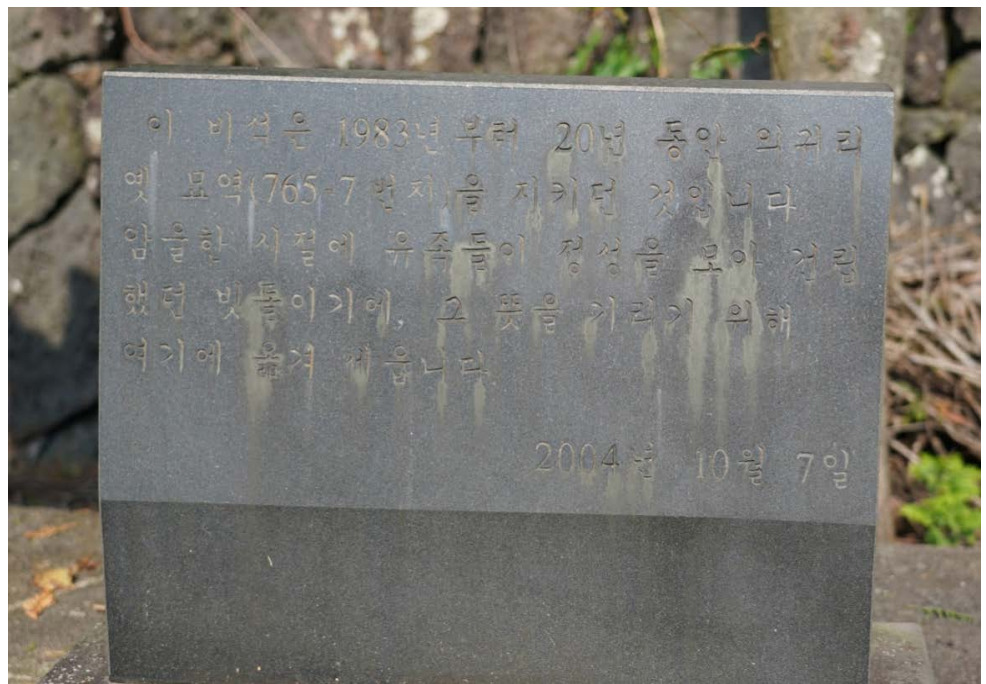 이 비석은 1983년부터 20년 동안 의귀리
옛 묘역(765-7번지)을 지키던 것입니다.
암울한 시절에 유족들이 정성을 모아 건립
했던 빗돌이기에, 그 뜻을 기리기 위해
여기에 옮겨 세웁니다.
2004년 10월 7일